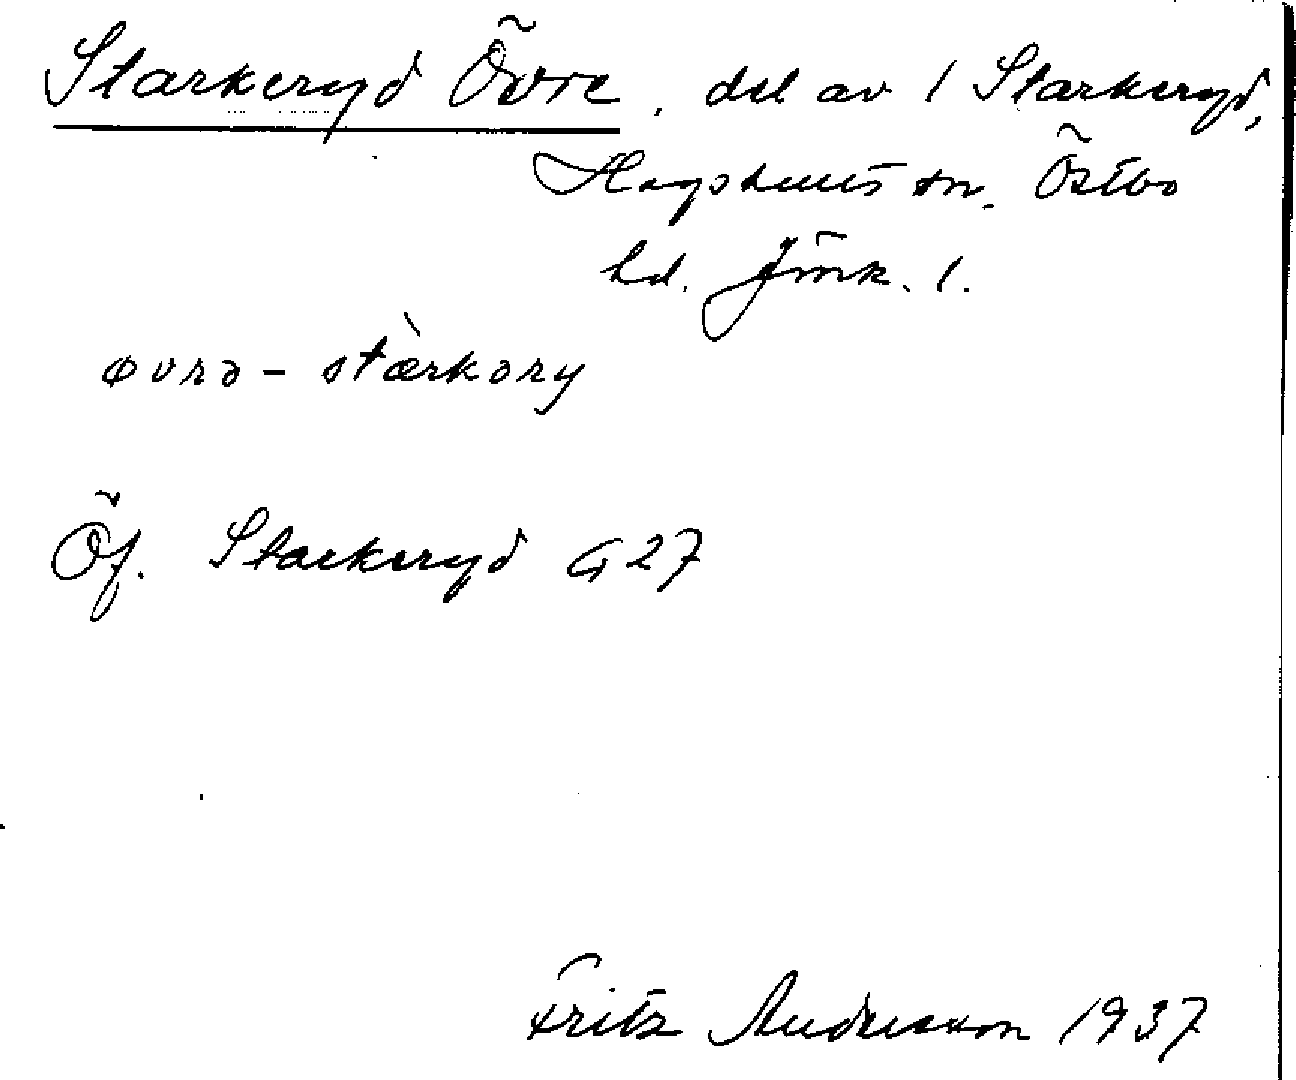 Starkeryd Övre, del av 1 Starkeryd,
Hagshults sn. Östbo
hd. Jönk. l.
øvrə - stàrkəry
Öf. Starkeryd G 27
Fritz Andersson 1937